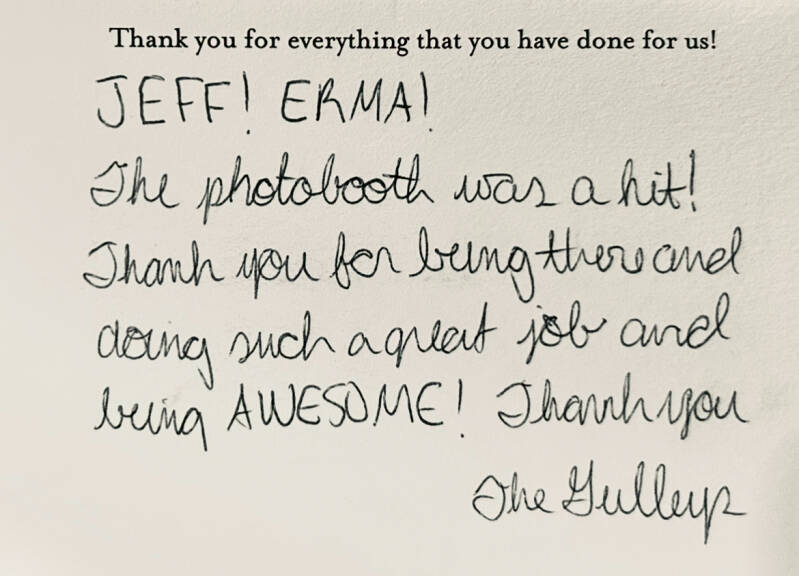 Thank you for everything that you have done for us!
JEFF! ERMA!
The photobooth was a hit!
Thank you for being there and
doing such a great job and
being AWESOME! Thank you
The Gulleys